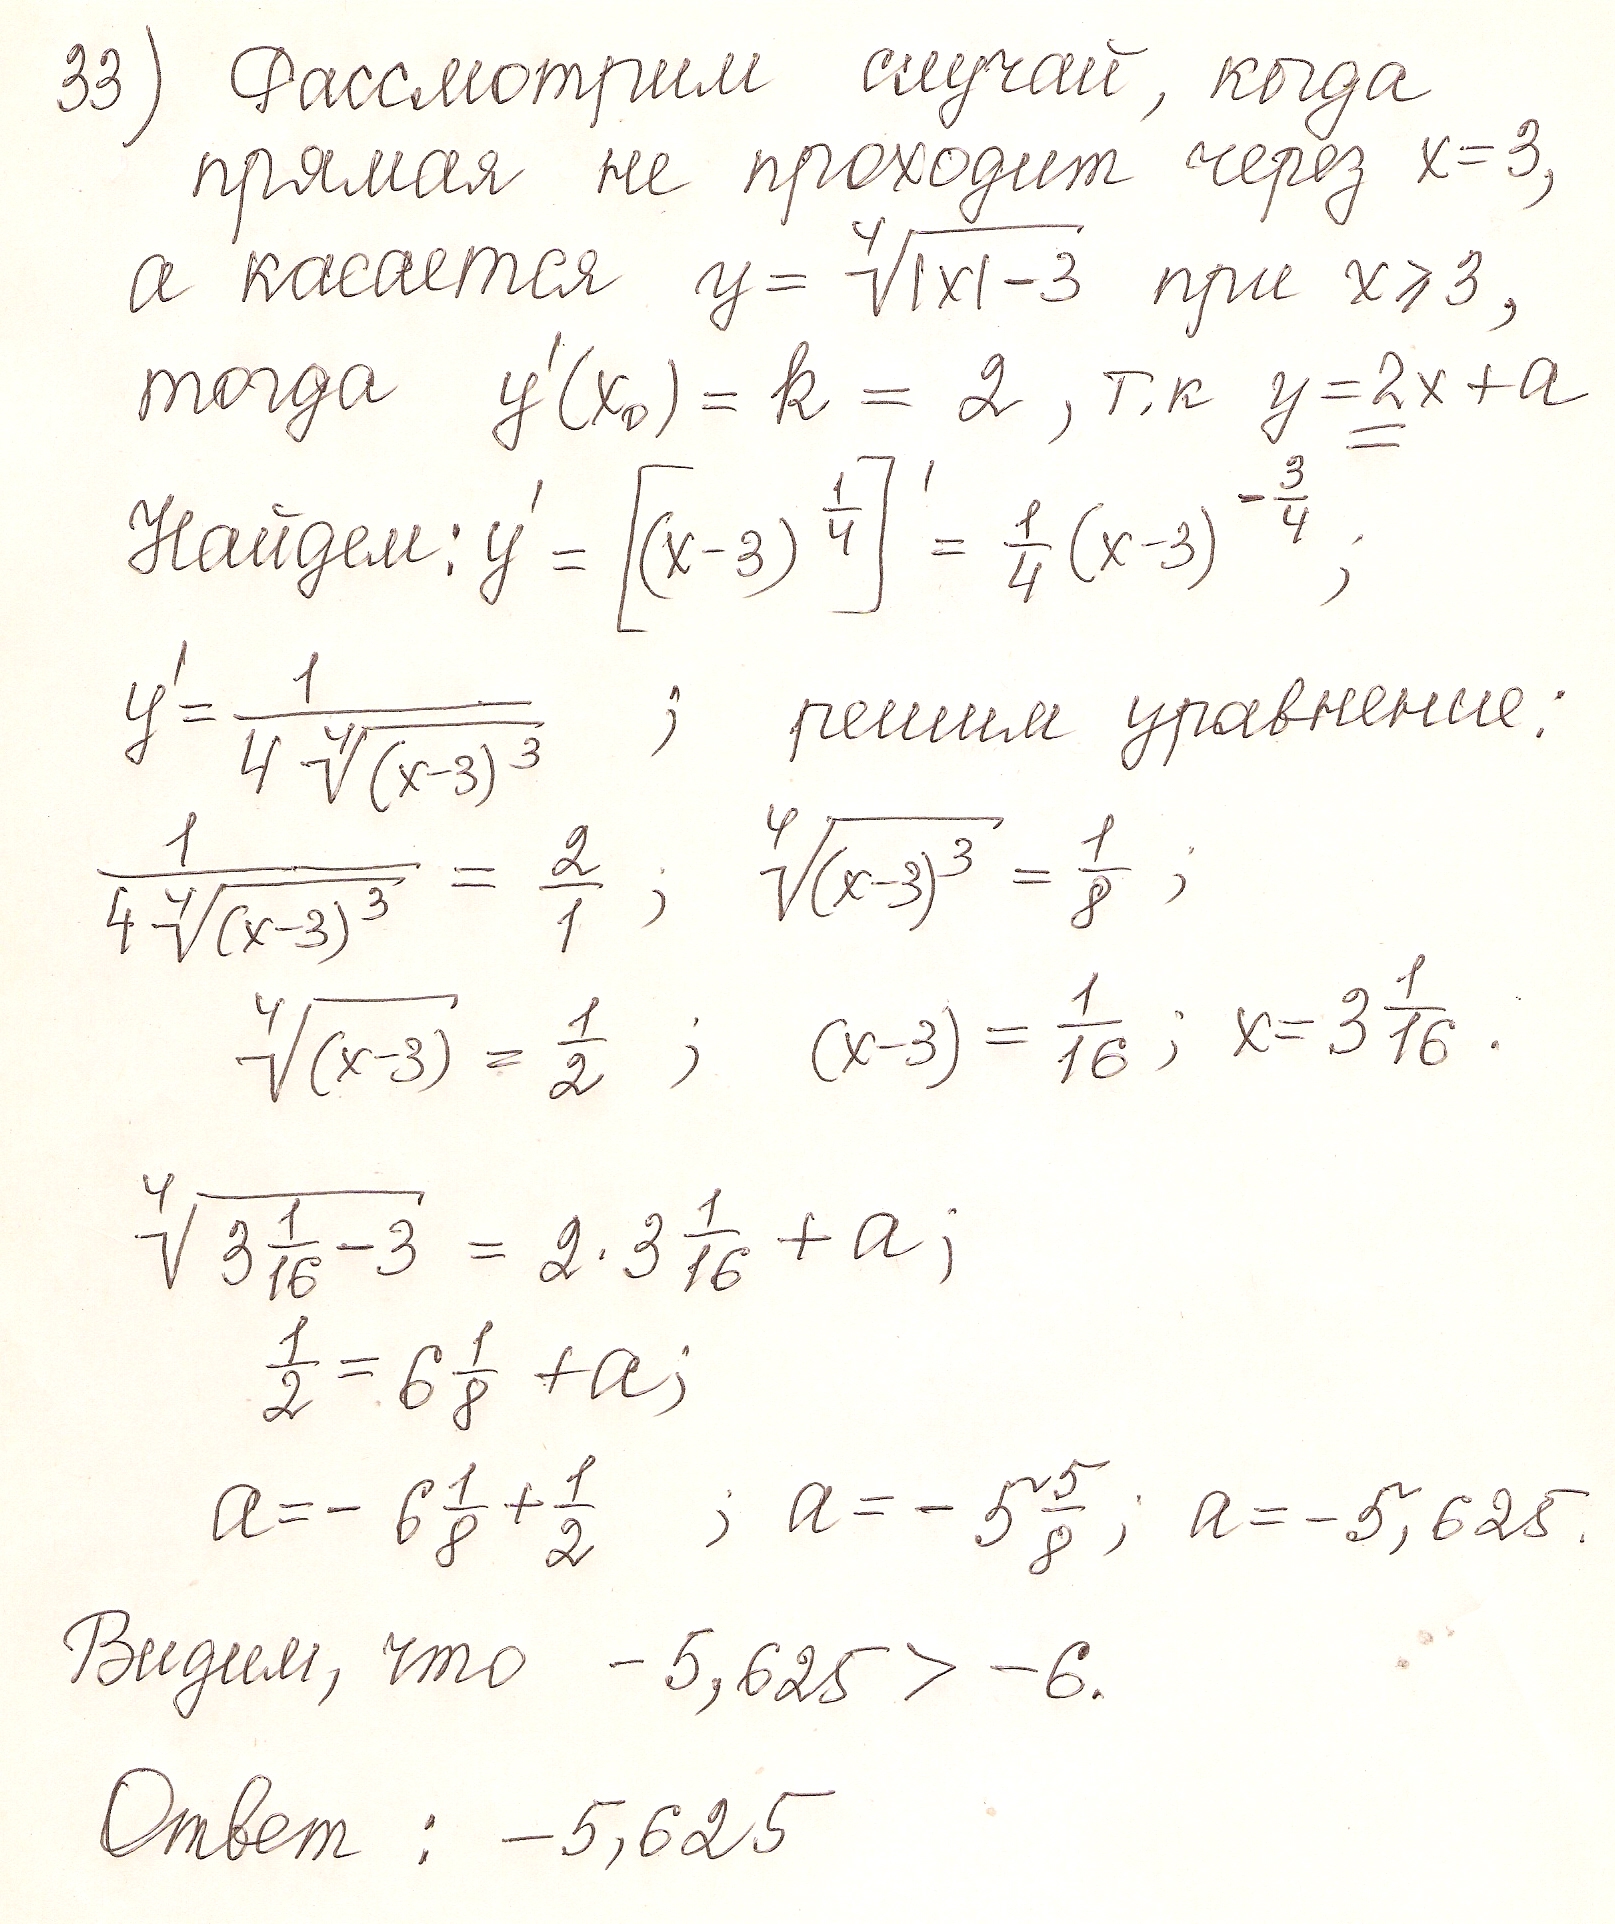 33) Рассмотрим случай, когда
прямая не проходит через x=3,
а касается y = ∜(|x|-3) при x⩾3,
тогда y'(x₀) = k = 2, т.к y=2x+a
Найдем: y' = [(x-3)^(1/4)]' = 1/4 (x-3)^(-3/4);
y' = 1/(4∜((x-3)³)) ; решим уравнение:
1/(4∜((x-3)³)) = 2/1 ; ∜((x-3)³) = 1/8 ;
∜(x-3) = 1/2 ; (x-3) = 1/16 ; x = 3 1/16 .
∜(3 1/16 - 3) = 2·3 1/16 + a;
1/2 = 6 1/8 + a;
a = - 6 1/8 + 1/2 ; a = - 5 5/8 ; a = -5,625.
Видим, что -5,625 > -6.
Ответ : -5,625